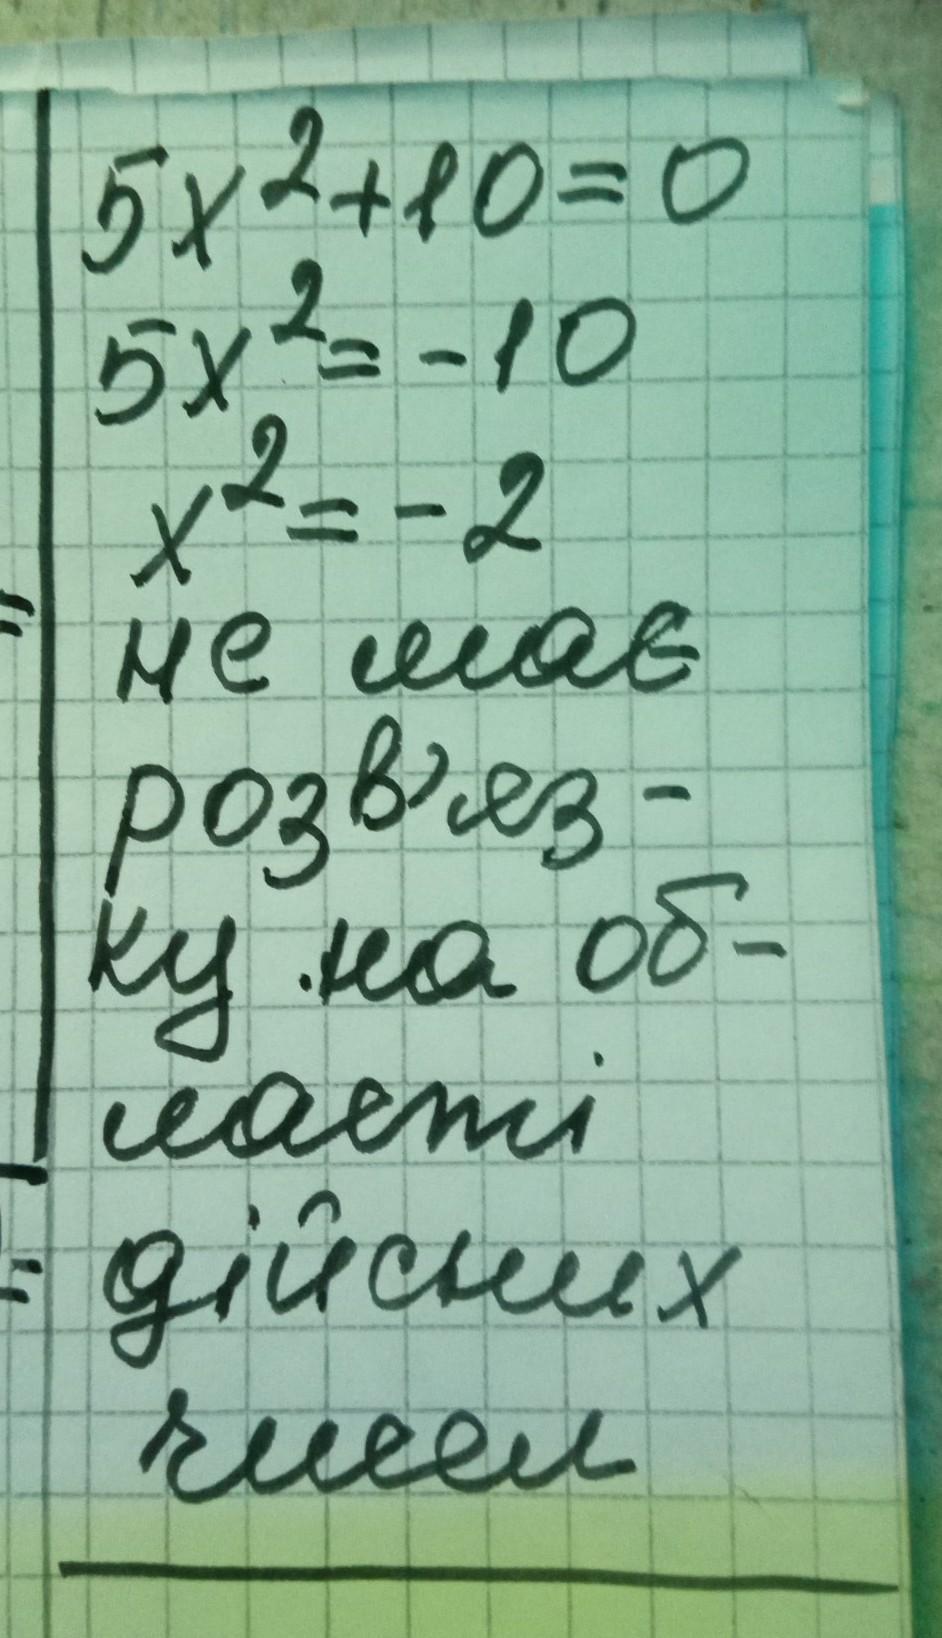 5x²+10=0
5x²=-10
x²=-2
не має
розв'яз-
ку на об-
ласті
дійсних
чисел